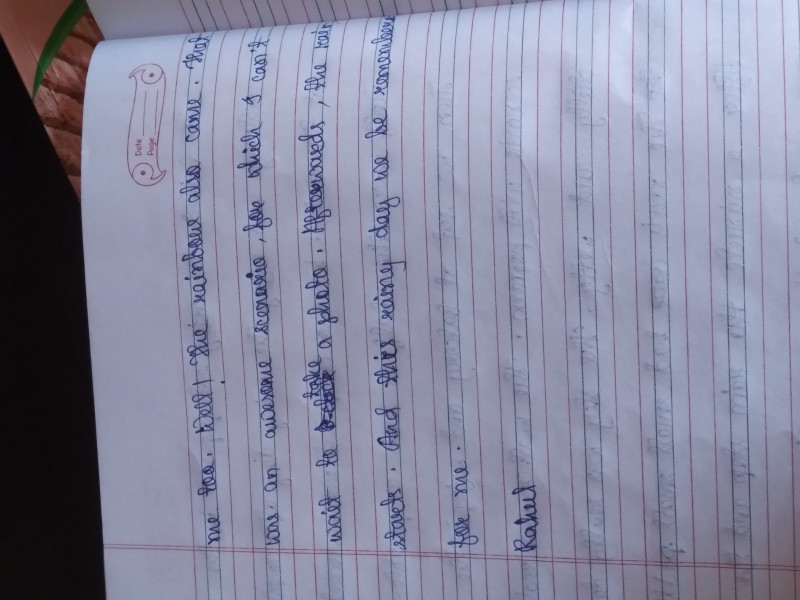 Date
Page
me too. Well! the rainbow also came. That
was an awesome scenario, for which I can't
wait to take a photo. Afterwards, the rain
starts. And this rainy day we be remembere
for me.
Rahul